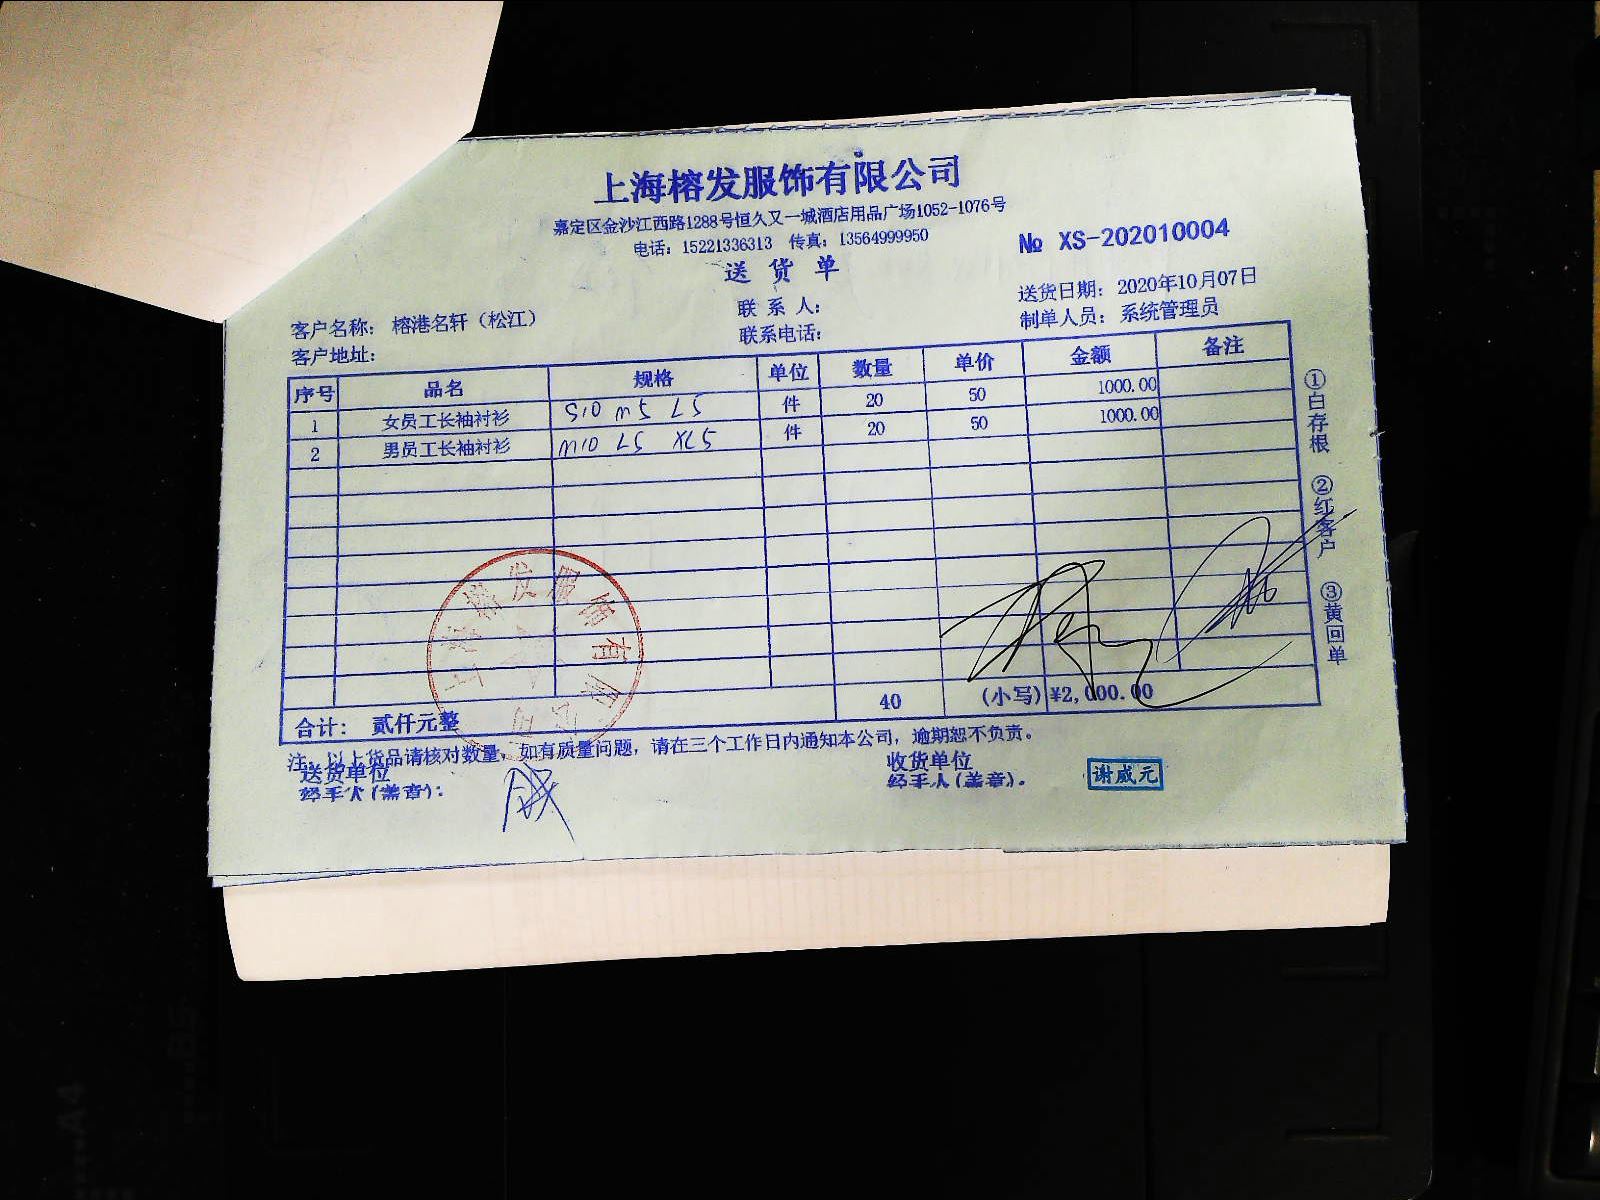 上海榕发服饰有限公司
嘉定区金沙江西路1288号恒久又一城酒店用品广场1052-1076号
电话：15221336313 传真：13564999950
№ XS-202010004
送货单
客户名称：榕港名轩（松江） 联系人： 送货日期：2020年10月07日
客户地址： 联系电话： 制单人员：系统管理员
序号 品名 规格 单位 数量 单价 金额 备注
1 女员工长袖衬衫 S10 M5 L5 件 20 50 1000.00
2 男员工长袖衬衫 M10 L5 XL5 件 20 50 1000.00
合计： 贰仟元整 40 (小写) ¥2,000.00
注：以上货品请核对数量，如有质量问题，请在三个工作日内通知本公司，逾期恕不负责。
送货单位 收货单位
经手人(盖章)： 经手人(盖章)。 谢威元
①白存根 ②红客户 ③黄回单
上海榕发服饰有限公司
A4
B5